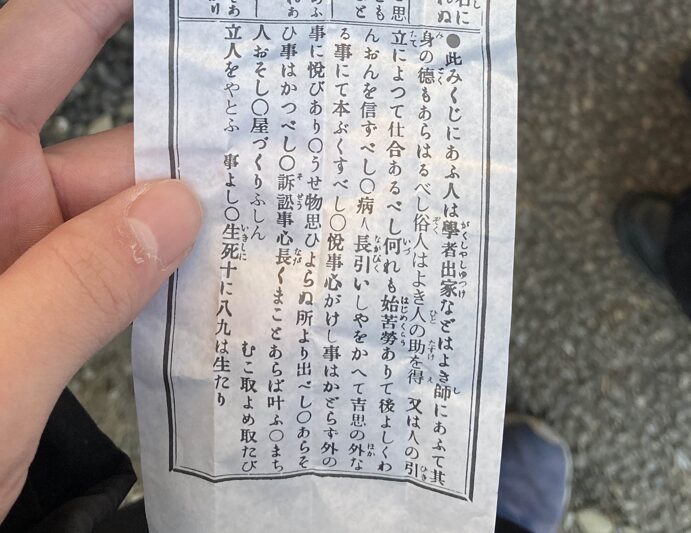 ●此みくじにあふ人は學者出家などはよき師にあふて其
身の德もあらはるべし俗人はよき人の助を得 又は人の引
立によつて仕合あるべし何れも始苦勞ありて後よしくわ
んおんを信ずべし〇病人長引いしやをかへて吉思の外な
る事にて本ぶくすべし〇悅事心がけし事はかどらす外の
事に悅びあり〇うせ物思ひよらぬ所より出べし〇あらそ
ひ事はかつべし〇訴訟事心長くまことあらば叶ふ〇まち
人おそし〇屋づくりふしん むこ取よめ取たび
立人をやとふ 事よし〇生死十に八九は生たり